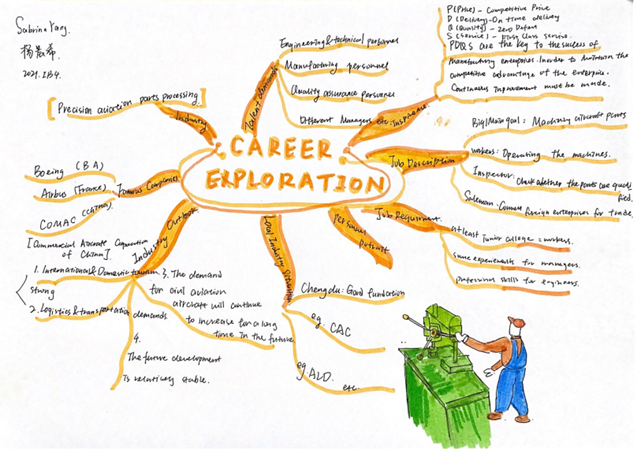 Sabrina Yang.
2021.
CAREER
EXPLORATION
Industry
[Precision aviation parts processing]
Talent demands
Engineering & technical personnel
Manufacturing personnel
Quality assurance personnel
Different Managers etc.
P(Price) - Competitive Price
D (Delivery) - On time delivery
Q (Quality) - Zero Defect
S (Service) - First Class Service.
PDQS are the key to the success of
manufacturing enterprises. In order to maintain the
competitive advantage of the enterprise.
Continuous Improvement must be made.
Job Description
Big/Main goal: Machining aircraft parts
workers: Operating the machines.
Inspector:
Check whether the parts are qualified.
Salesman: Connect
foreign enterprises for trade.
Job Requirement
at least junior college = workers.
some experiments for managers.
professional skills for engineers.
Personal
portrait
Local Industry
Chengdu: Good fundation
eg. CAC
eg. ALD.
etc.
Industry Outlook
1. International & Domestic tourism
strong
2. Logistics & transportation demands
3. The demand
for civil aviation
aircraft will continue
to increase for a long
time in the future.
4.
The future development
is relatively stable.
Famous Companies
Boeing (BA)
Airbus (France)
COMAC (China)
[Commercial Aircraft Corporation
of China].